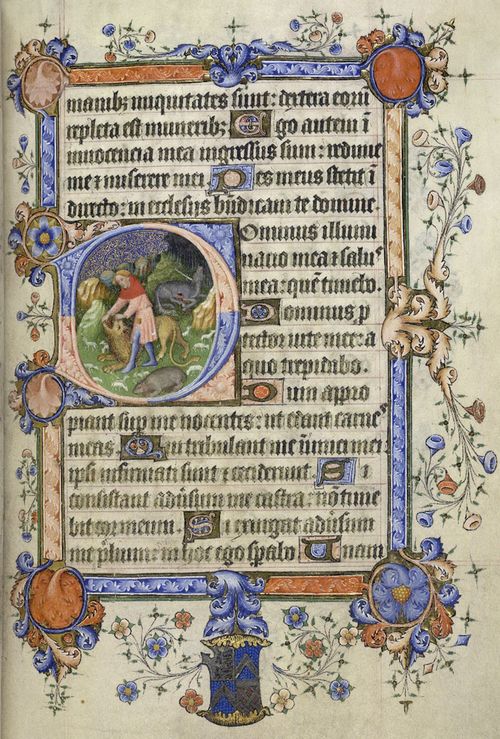 manib; iniquitates sunt: dextera eorū
repleta est munerib; Ego autem ī
innocencia mea ingressus sum: redime
me ⁊ miserere mei. Pes meus stetit ī
directo: in ecclesijs bn̄dicam te domine.
Dominus illumi
natio mea ⁊ salus
mea: quē timebo.
Dominus p
tector vite mee: a
quo trepidabo.
Dum appro
piant sup me nocentes: ut edant carnes
meas. Qui tribulant me inimici mei:
ipsi infirmati sunt ⁊ ceciderunt. Si
consistant adu̾sum me castra: nō time
bit cor meum. Si exurgat adu̾sum
me plium: in hoc ego spabo. Unam